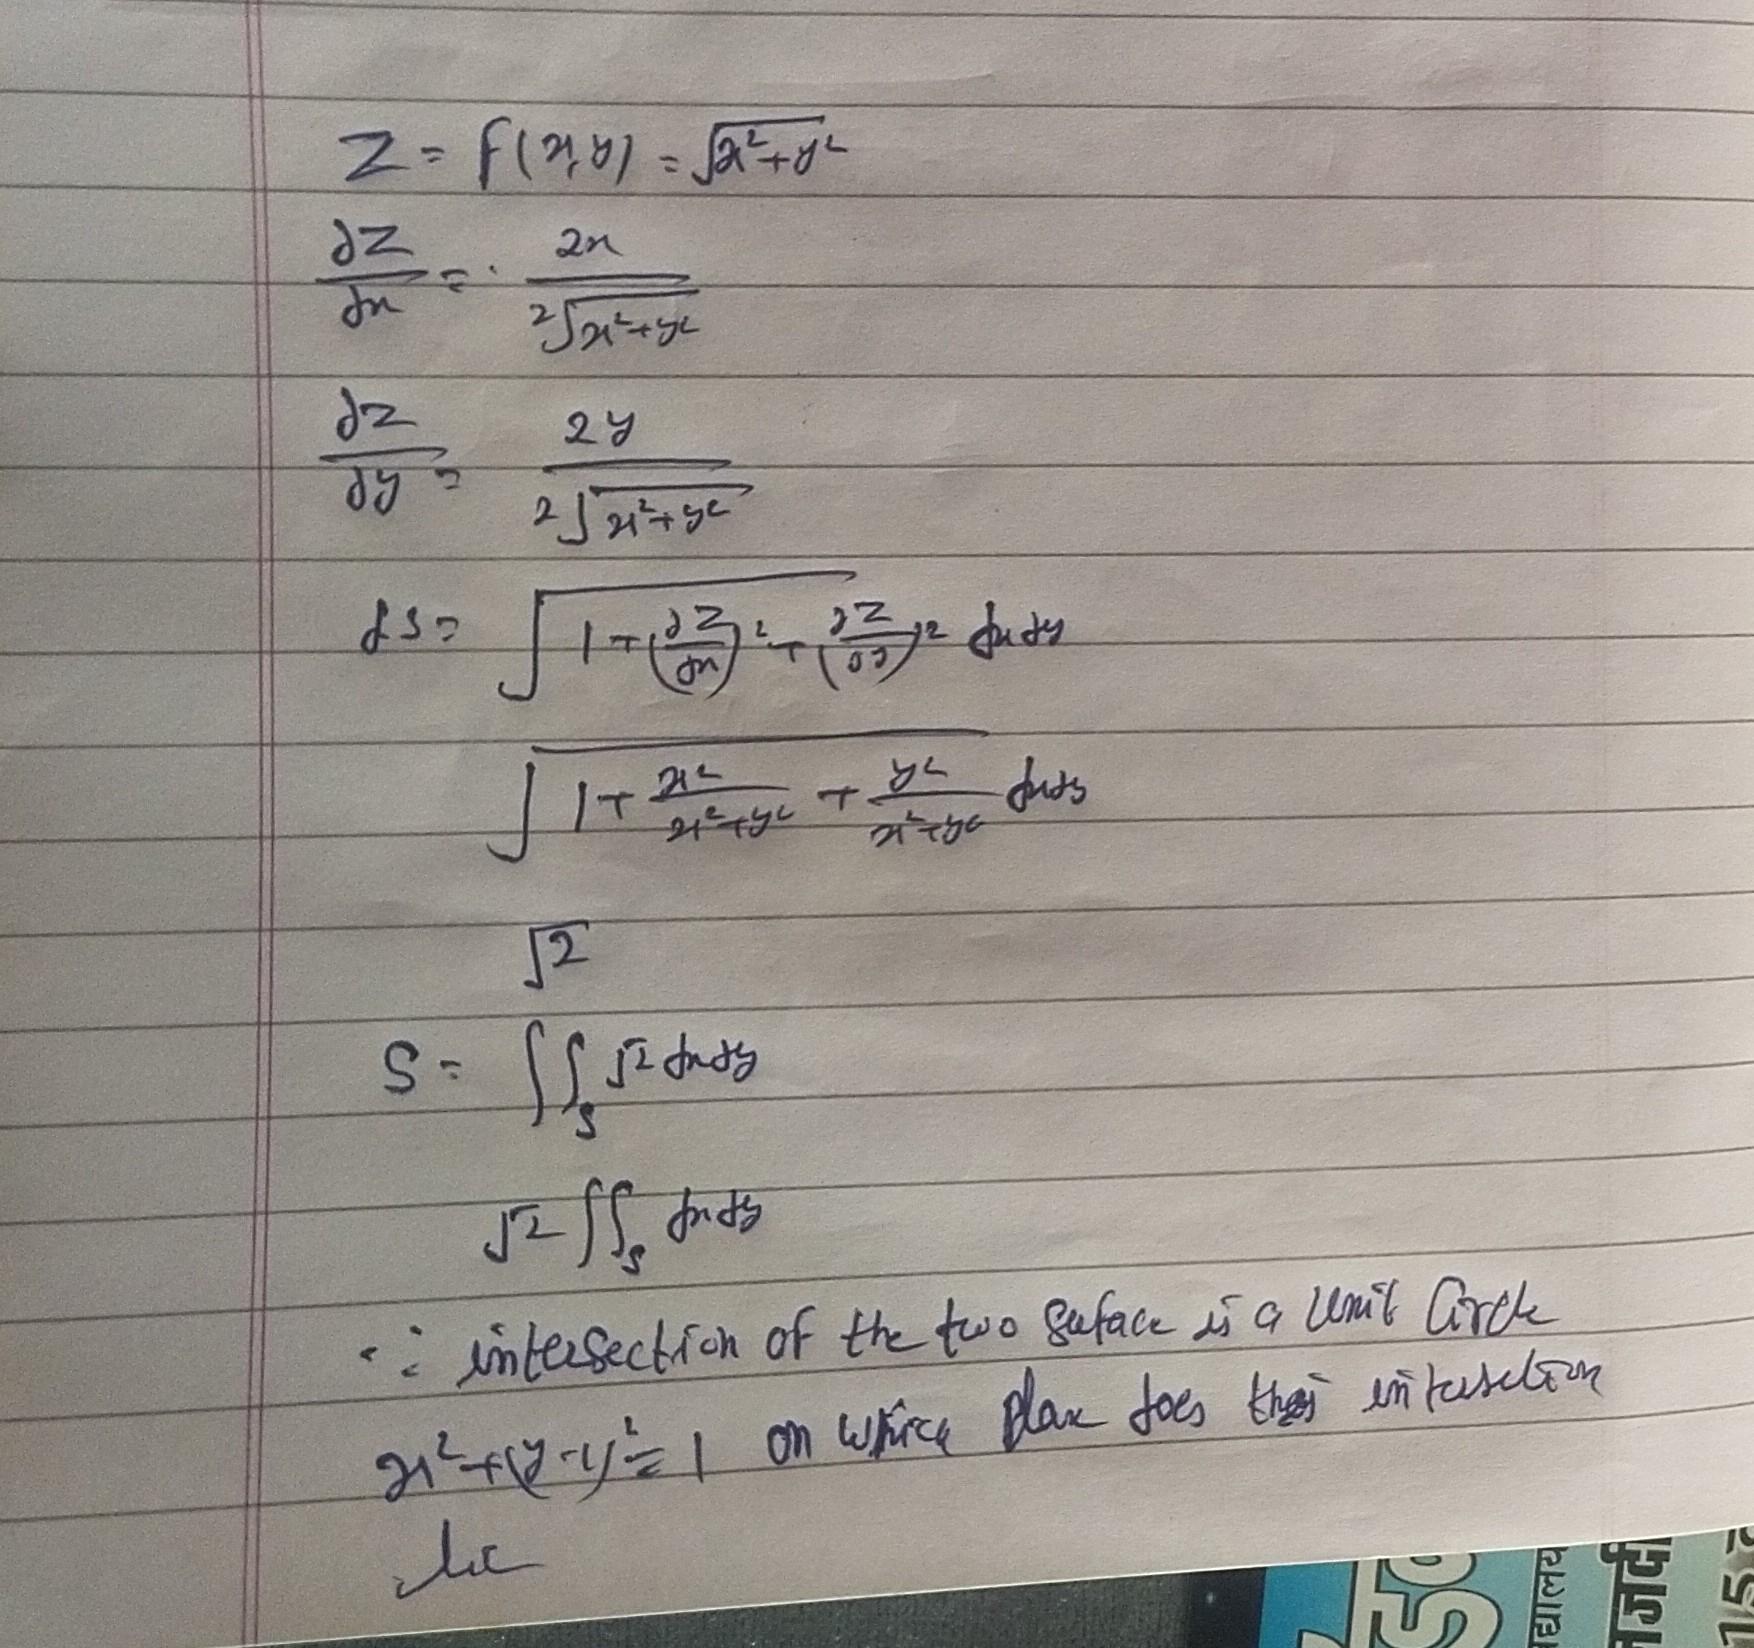 Z = f(x,y) = √x²+y²
∂Z/∂x = 2x / 2√x²+y²
∂z/∂y = 2y / 2√x²+y²
ds = √1+(∂Z/∂x)²+(∂Z/∂y)² dxdy
√1+ x²/x²+y² + y²/x²+y² dxdy
√2
S = ∫∫s √2 dxdy
√2 ∫∫s dxdy
∵ intersection of the two suface is a Unit Circle
x²+(y-1)²=1 on which plane does this intersection
lie